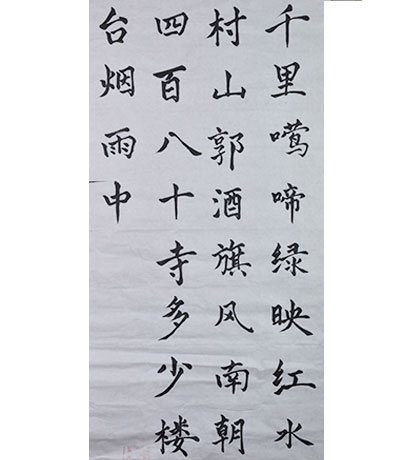 千里啼绿映红水
村山郭酒旗风南朝
四百八十寺多少楼
台烟雨中